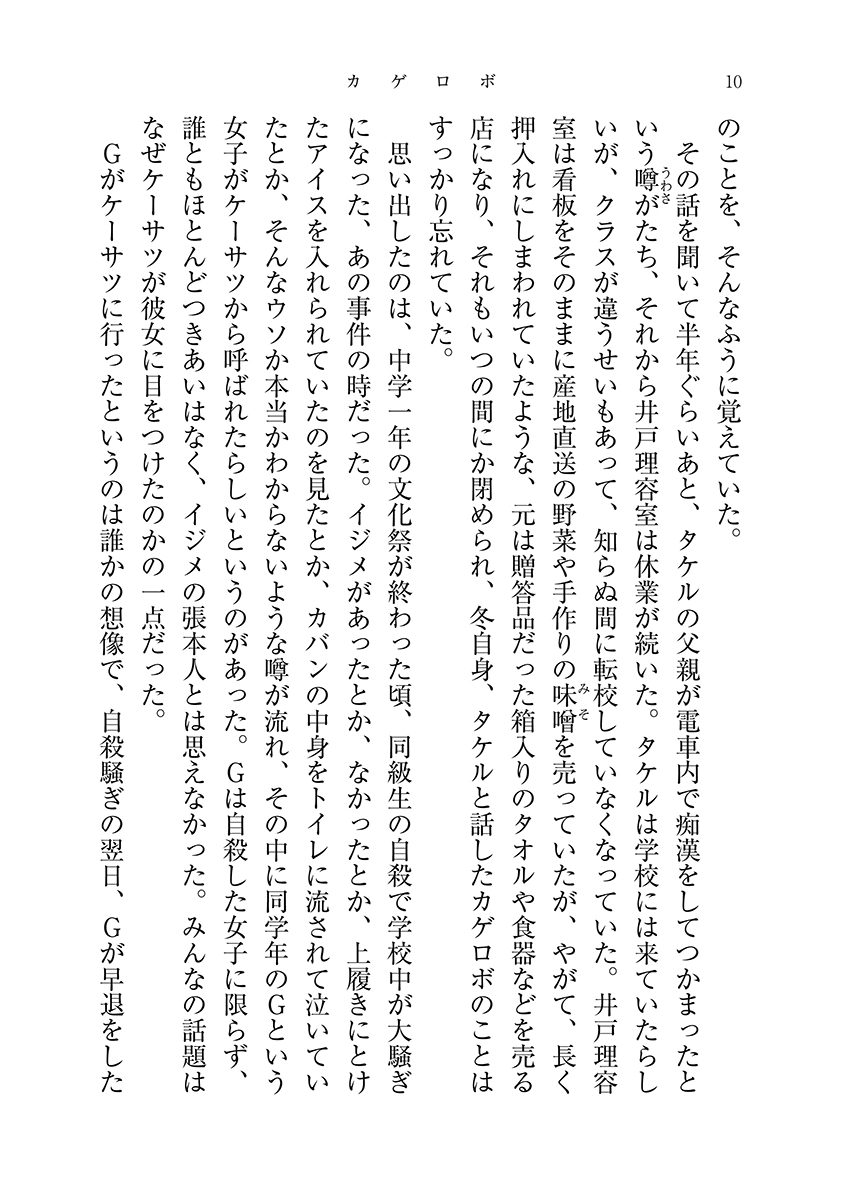 カゲロボ
10
のことを、そんなふうに覚えていた。
その話を聞いて半年ぐらいあと、タケルの父親が電車内で痴漢をしてつかまったと
いう噂がたち、それから井戸理容室は休業が続いた。タケルは学校には来ていたらし
いが、クラスが違うせいもあって、知らぬ間に転校していなくなっていた。井戸理容
室は看板をそのままに産地直送の野菜や手作りの味噌を売っていたが、やがて、長く
押入れにしまわれていたような、元は贈答品だった箱入りのタオルや食器などを売る
店になり、それもいつの間にか閉められ、冬自身、タケルと話したカゲロボのことは
すっかり忘れていた。
思い出したのは、中学一年の文化祭が終わった頃、同級生の自殺で学校中が大騒ぎ
になった、あの事件の時だった。イジメがあったとか、なかったとか、上履きにとけ
たアイスを入れられていたのを見たとか、カバンの中身をトイレに流されて泣いてい
たとか、そんなウソか本当かわからないような噂が流れ、その中に同学年のGという
女子がケーサツから呼ばれたらしいというのがあった。Gは自殺した女子に限らず、
誰ともほとんどつきあいはなく、イジメの張本人とは思えなかった。みんなの話題は
なぜケーサツが彼女に目をつけたのかの一点だった。
Gがケーサツに行ったというのは誰かの想像で、自殺騒ぎの翌日、Gが早退をした